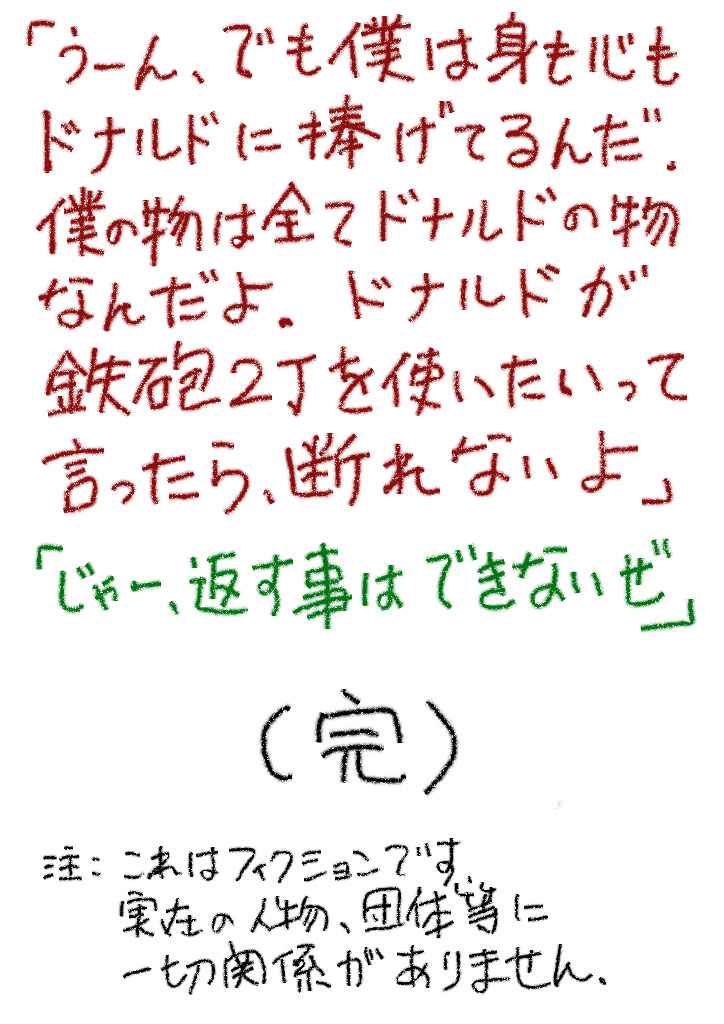 「うーん、でも僕は身も心も
ドナルドに捧げてるんだ.
僕の物は全てドナルドの物
なんだよ. ドナルドが
鉄砲2丁を使いたいって
言ったら、断れないよ」
「じゃー、返す事はできないぜ」
(完)
注:これはフィクションです
実在の人物、団体等に
一切関係がありません.